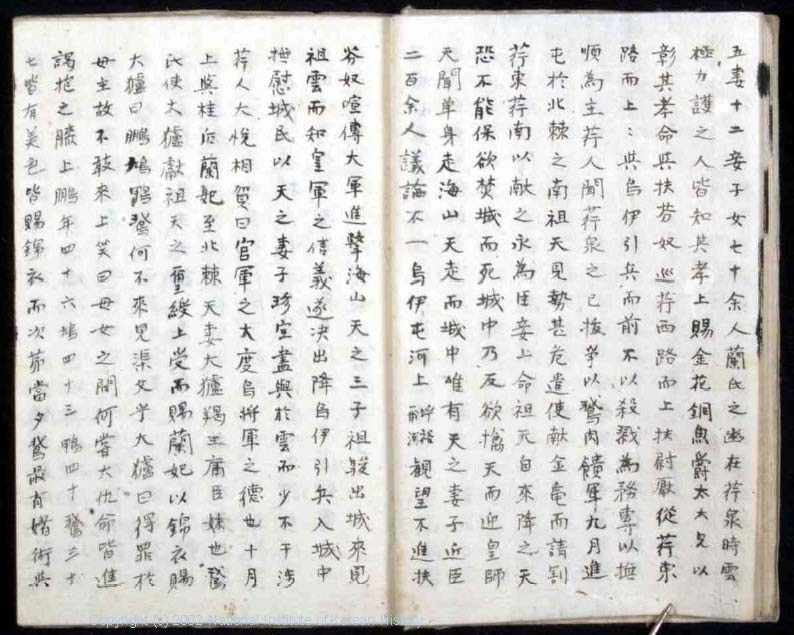 五妻十二妾子女七十余人蘭氏之幽在荇泉時雲
極力護之人皆知其孝上賜金花銅魚爵太大兄以
彰其孝命與扶芬奴巡荇西路而上扶尉厭從荇東
路而上:與烏伊引兵而前不以殺戮為務專以撫
順為主荇人聞荇泉之已拔爭以鵞肉饋軍九月進
屯於北棘之南祖天見勢甚危遣使献金亀而請割
荇東荇南以献之永為臣妾上命祖天自來降之天
恐不能保欲焚城而死城中乃反欲擒天而迎皇師
天聞單身走海山天走而城中唯有天之妻子近臣
二百余人議論不一烏伊屯河上観望不進扶
芬奴喧傳大軍進擊海山天之三子祖駿出城來見
祖雲而知皇軍之信義遂决出降烏伊引兵入城中
撫慰城民以天之妻子珍宝盡與於雲而少不干涉
荇人大悅相賀曰官軍之大度烏將軍之德也十月
上與桂后蘭妃至北棘天妻大獹羯主庸臣妹也鵞
氏使大獹獻祖天之璽綬上受而賜蘭妃以錦衣賜
大獹曰鵬鳩鴨鵞何不來見渠父乎大獹曰得罪於
母主故不敢來上笑曰母女之間何嘗大仇命皆進
謁抱之膝上鵬年四十六鳩四十三鴨四十鵞三十
七皆有美色皆賜錦衣而次苐當夕鵞最有術與
Copyright (c) 2002 National Institute of Korean History